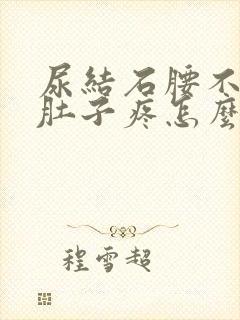 尿結石腰不
肚子疼怎麼
程雪超